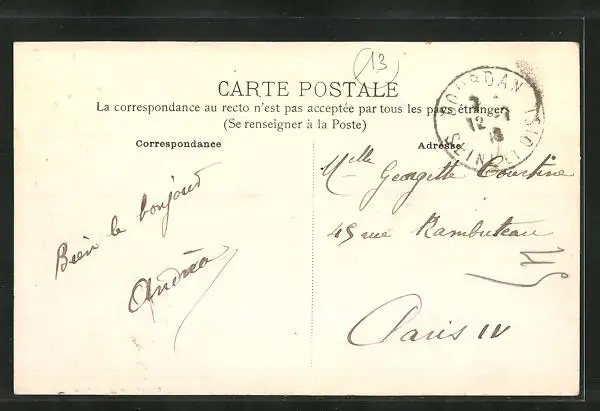 13
CARTE POSTALE
La correspondance au recto n'est pas acceptée par tous les pays étrangers
(Se renseigner à la Poste)
Correspondance
Bien le bonjour
Andréa
Adresse
Mlle Georgette Courtine
45 rue Rambuteau
Paris IV
DOURDAN
12
SEINE ET OISE